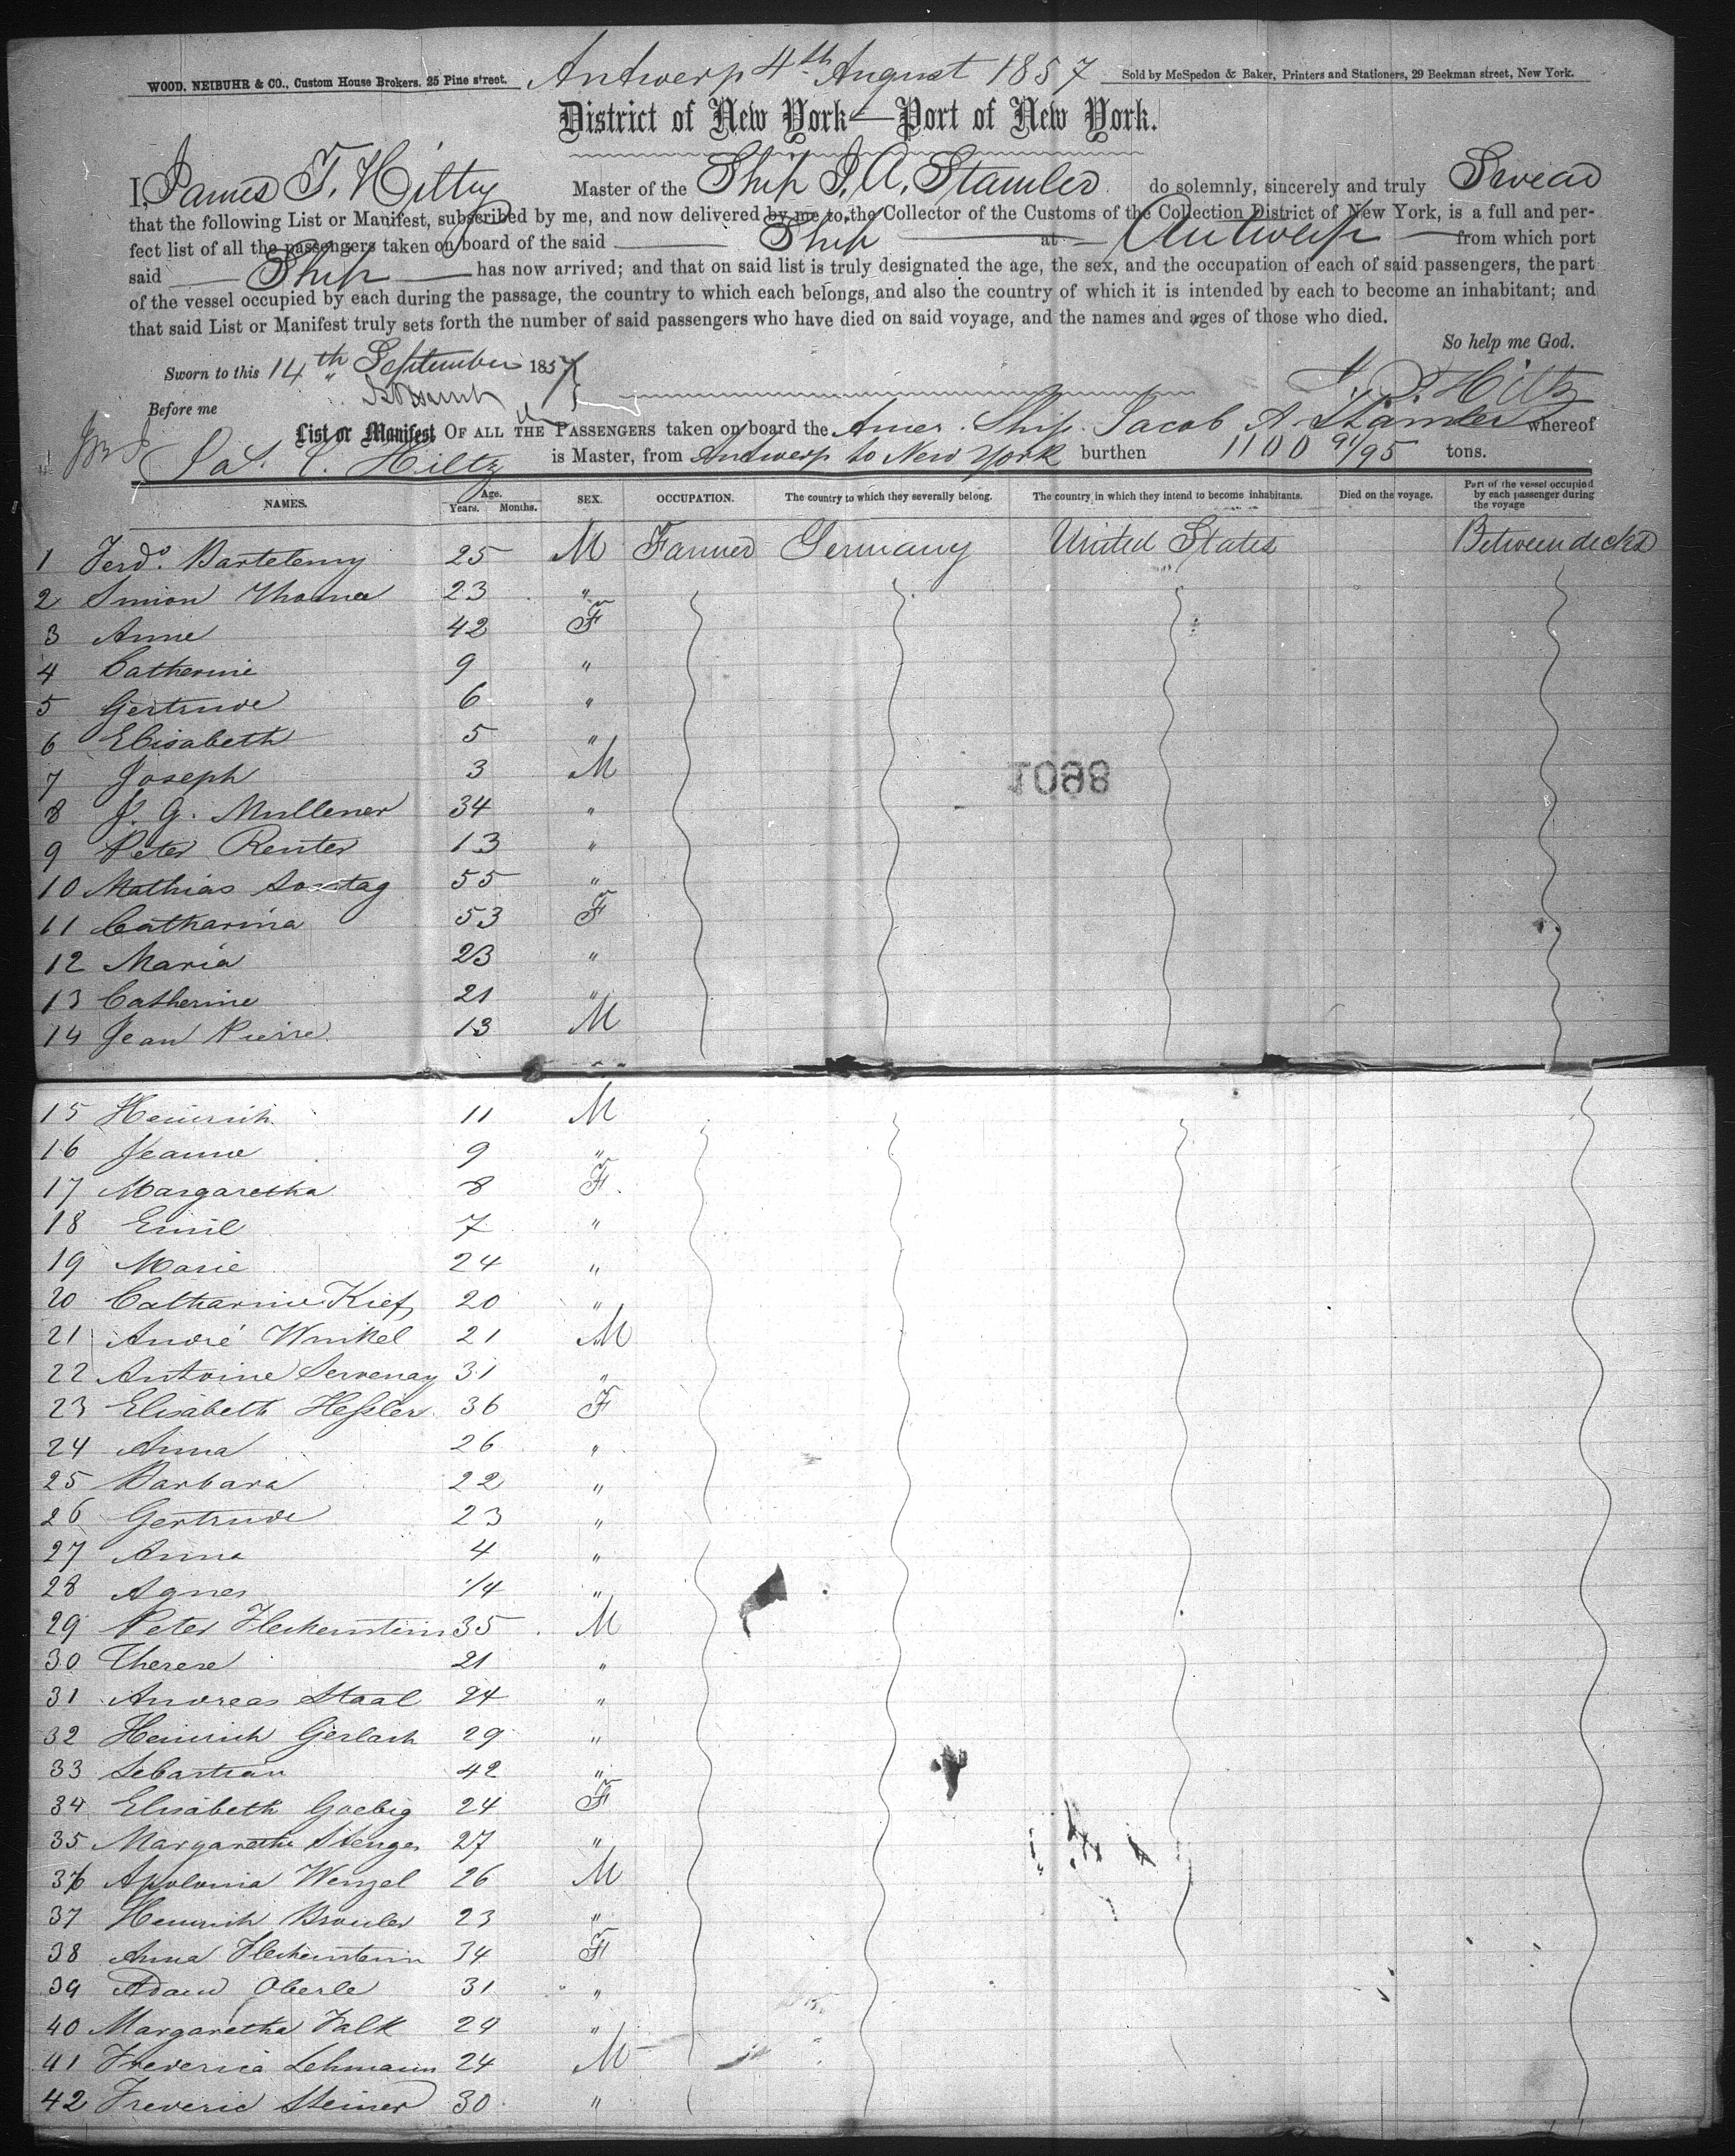 Antwerp 4th August 1857
WOOD, NEIBUHR & CO., Custom House Brokers, 25 Pine street.
Sold by McSpedon & Baker, Printers and Stationers, 29 Beekman street, New York.
District of New York—Port of New York.
I, James T. Hiltz Master of the Ship J. A. Stamler do solemnly, sincerely and truly Swear
that the following List or Manifest, subscribed by me, and now delivered by me to the Collector of the Customs of the Collection District of New York, is a full and per-
fect list of all the passengers taken on board of the said Ship at Antwerp from which port
said Ship has now arrived; and that on said list is truly designated the age, the sex, and the occupation of each of said passengers, the part
of the vessel occupied by each during the passage, the country to which each belongs, and also the country of which it is intended by each to become an inhabitant; and
that said List or Manifest truly sets forth the number of said passengers who have died on said voyage, and the names and ages of those who died.
So help me God.
Sworn to this 14th September 1857
Hiltz
Before me
List or Manifest OF ALL THE PASSENGERS taken on board the Amer. Ship Jacob A. Stamler whereof
Hiltz is Master, from Antwerp to New York burthen 1100 91/95 tons.
NAMES. Age. Years. Months. SEX. OCCUPATION. The country to which they severally belong. The country in which they intend to become inhabitants. Died on the voyage. Part of the vessel occupied by each passenger during the voyage
1 Ferdo. Bartelemy 25 M Farmer Germany United States Between decks
2 Simon Thoma 23 "
3 Anne 42 F
4 Catherine 9 "
5 Gertrude 6 "
6 Elisabeth 5 "
7 Joseph 3 M
1098
8 J. G. Mullener 34 "
9 Peter Reuter 13 "
10 Mathias Sontag 55 "
11 Catharina 53 F
12 Maria 23 "
13 Catherine 21 "
14 Jean Pierre 13 M
15 Heinrich 11 M
16 Jeanne 9 "
17 Margaretha 8 F
18 Emil 7 "
19 Marie 24 "
20 Catharine Kief 20 "
21 André Winkel 21 M
22 Antoine Servenay 31 "
23 Elisabeth Hessler 36 F
24 Anna 26 "
25 Barbara 22 "
26 Gertrude 23 "
27 Anna 4 "
28 Agnes 1/4 "
29 Peter Fleckenstein 35 M
30 Therese 21 "
31 Andreas Staal 24 "
32 Heinrich Gerlach 29 "
33 Sebastian 42 "
34 Elisabeth Goebig 24 F
35 Margarethe Stenger 27 "
36 Apolonia Wenzel 26 M
37 Heinrich 23 "
38 Anna Fleckenstein 34 F
39 Adam Oberle 31 "
40 Margaretha Falk 24 "
41 Frederica Lehmann 24 M
42 Frederic Steiner 30 "